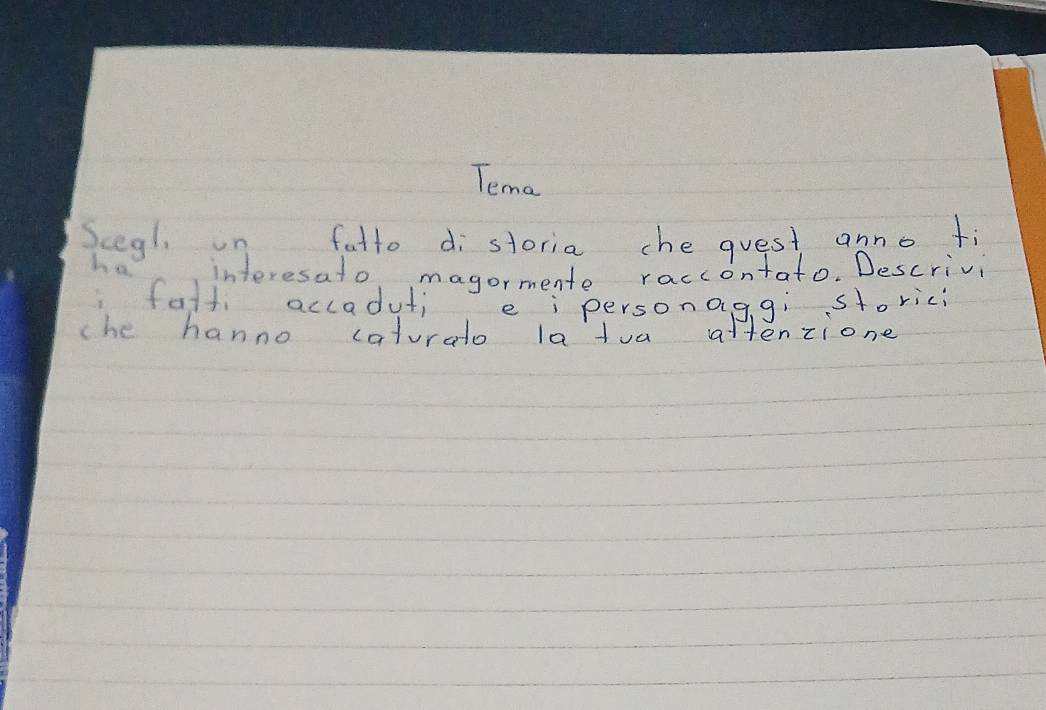 Tema
Scegli un fatto di storia che quest anno ti
ha interesato magormente raccontato. Descrivi
i fatti accaduti e i personaggi storici
che hanno caturato la tua attenzione